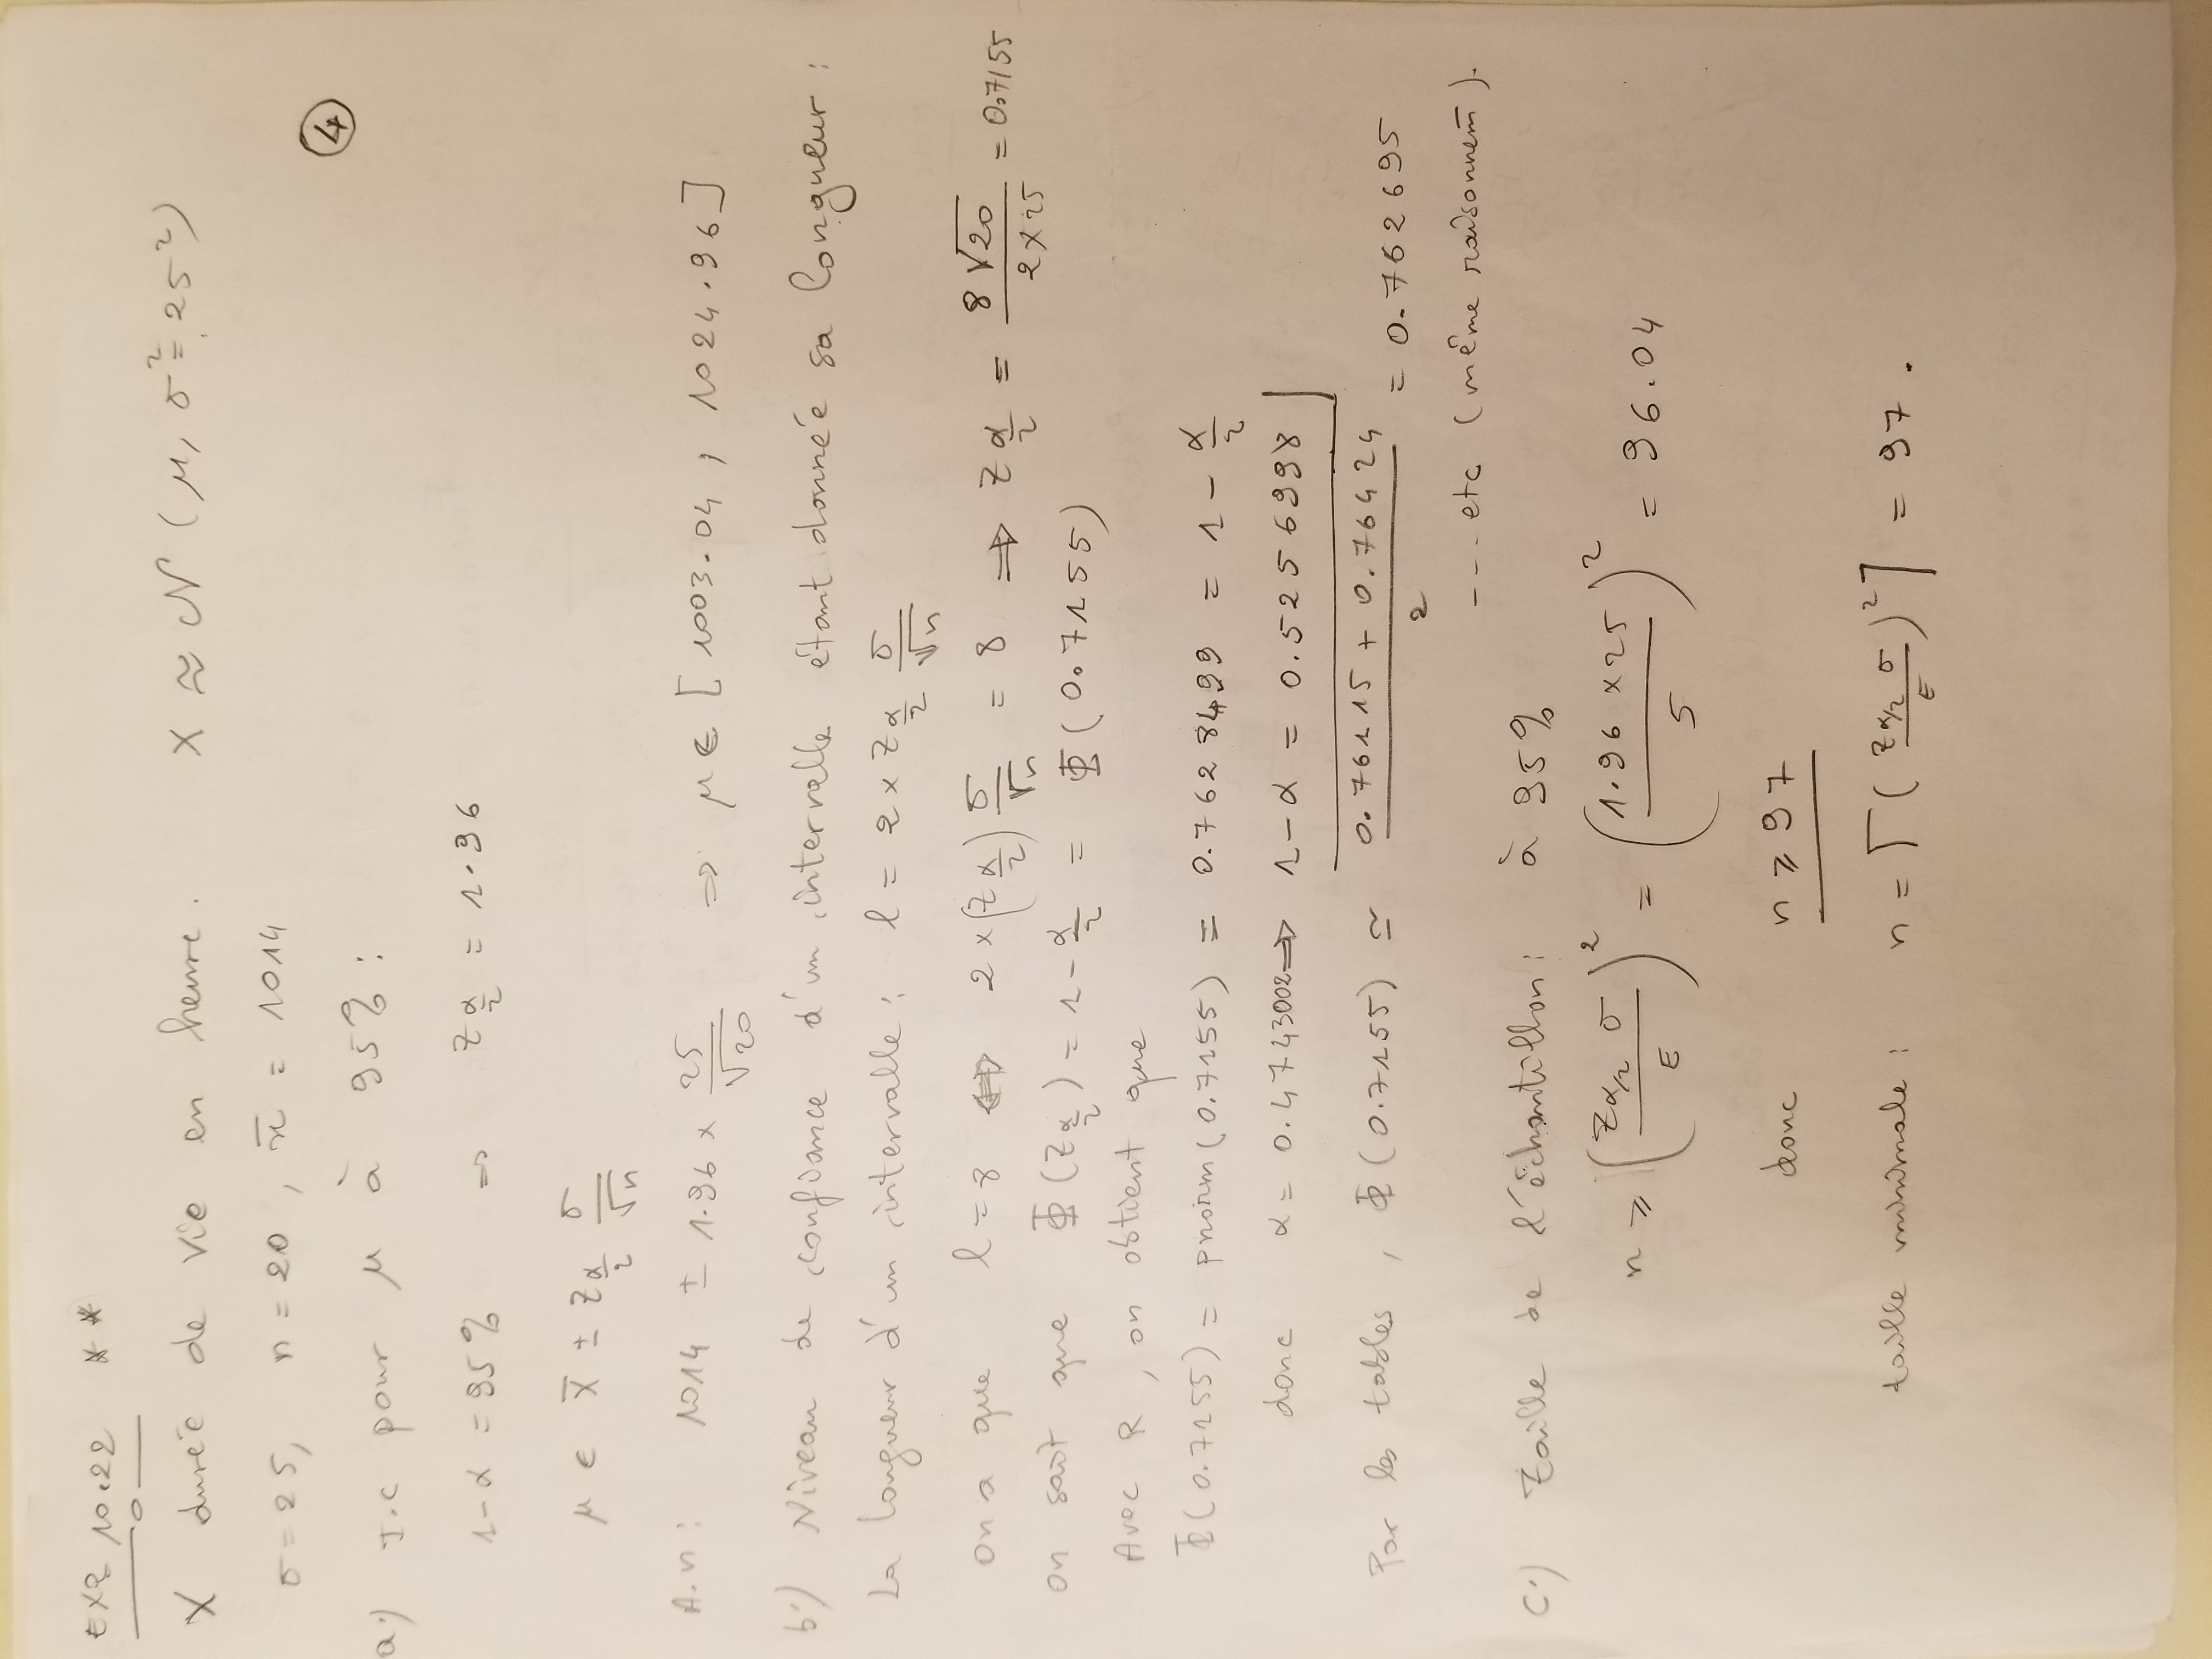 EX2 10.22 **
X durée de vie en heure. X ≈ N (μ, σ² = 25²)
σ = 25, n = 20, x̄ = 1014
④
a.) I.C pour μ à 95% :
1-α = 95% => Z_{α/2} = 1.96
μ ∈ X̄ ± Z_{α/2} σ/√n
A.n : 1014 ± 1.96 × 25/√20 => μ ∈ [1003.04, 1024.96]
b.) Niveau de confiance d'un intervalle étant donnée sa longueur :
La longueur d'un intervalle : l = 2 × Z_{α/2} σ/√n
on a que l = 8 <=> 2 × (Z_{α/2}) σ/√n = 8 => Z_{α/2} = 8√20/(2×25) = 0.7155
on sait que Φ(Z_{α/2}) = 1 - α/2 = Φ(0.7155)
Avec R, on obtient que
Φ(0.7155) = pnorm(0.7155) = 0.7628499 = 1 - α/2
donc α = 0.4743002 => 1-α = 0.5256998
Par les tables, Φ(0.7155) ≃ (0.76115 + 0.76424)/2 = 0.762695
---. etc (même raisonnem̄).
C.) Taille de l'échantillon : à 95%
n ⩾ (Z_{α/2} σ / E)² = (1.96 × 25 / 5)² = 96.04
donc n ⩾ 97
taille minimale : n = ⌈(Z_{α/2} σ / E)²⌉ = 97.